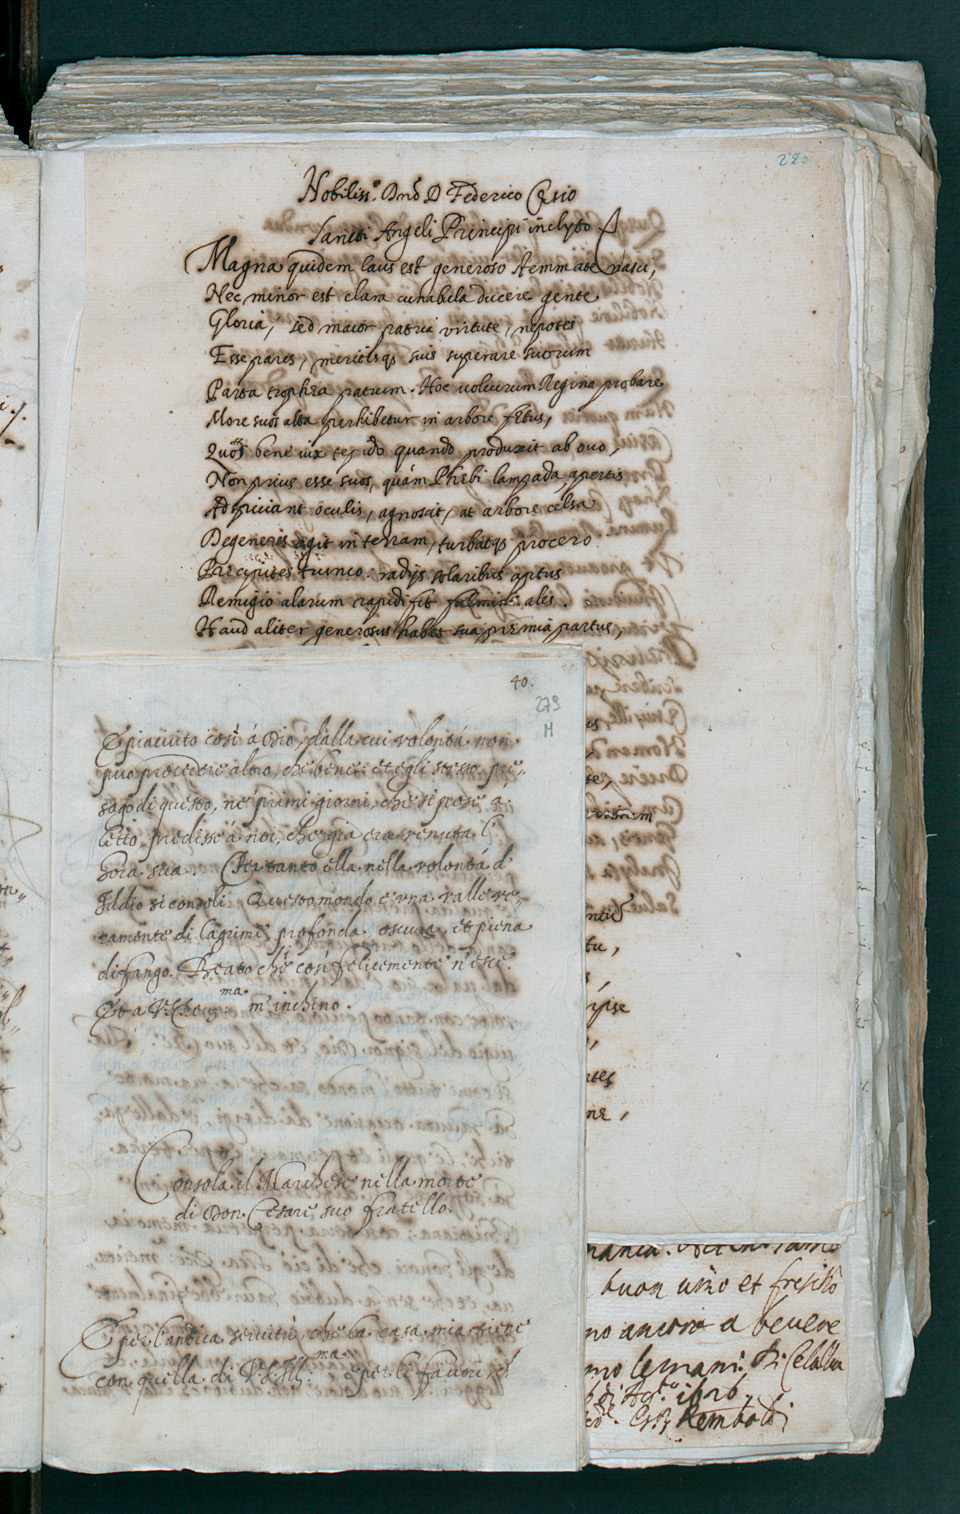 280
Nobiliss.º Dnō D Federico Cesio
Sancti Angeli Principi inclyto
Magna quidem laus est generoso stemmate nasci,
Nec minor est clara cunabula ducere gente
Gloria, sed maior patria virtute, nepotes
Esse pares, meritisq; suis superare suorum
Parta trophæa patrum. Hoc volucrum Regina probare
More suos alta perhibetur in arbore fętus,
Quos bene vix tepido quando produxit ab ovo,
Non prius esse suos, quám Phębi lampada apertis
Adspiciant oculis, agnoscit, at arbore celsa
Degeneres agit in terram, turbatq; procero
Pręcipites trunco: radijs solaribus aptus
Remigio alarum rapidi fit fulminis ales.
Haud aliter generosus habet sua pręmia partus,
40.
279
H
È piaciuto così à Dio, dalla cui volontà non
può procedere altro, che bene: et egli stesso pre-
sago di questo, ne' primi giorni, che si pose à
letto, predisse à noi, che già era venuta l'
hora sua. Per tanto ella nella volontà d'
Iddio si consoli. Questo mondo è una valle ve-
ramente di lagrime profonda, oscura, et piena
di fango. Beato chi così felicemente n'esce.
Et a V.S. m'inchino.
Consola il Marchese nella morte
di Don Cesare suo fratello.
E per l'antica servitù, che la casa mia tiene
con quella di V.S. Ill.ma e per li favori
ipse
buon vino et frescho
no ancora a bevere
mo le mani. Di
1626.
Remboldi